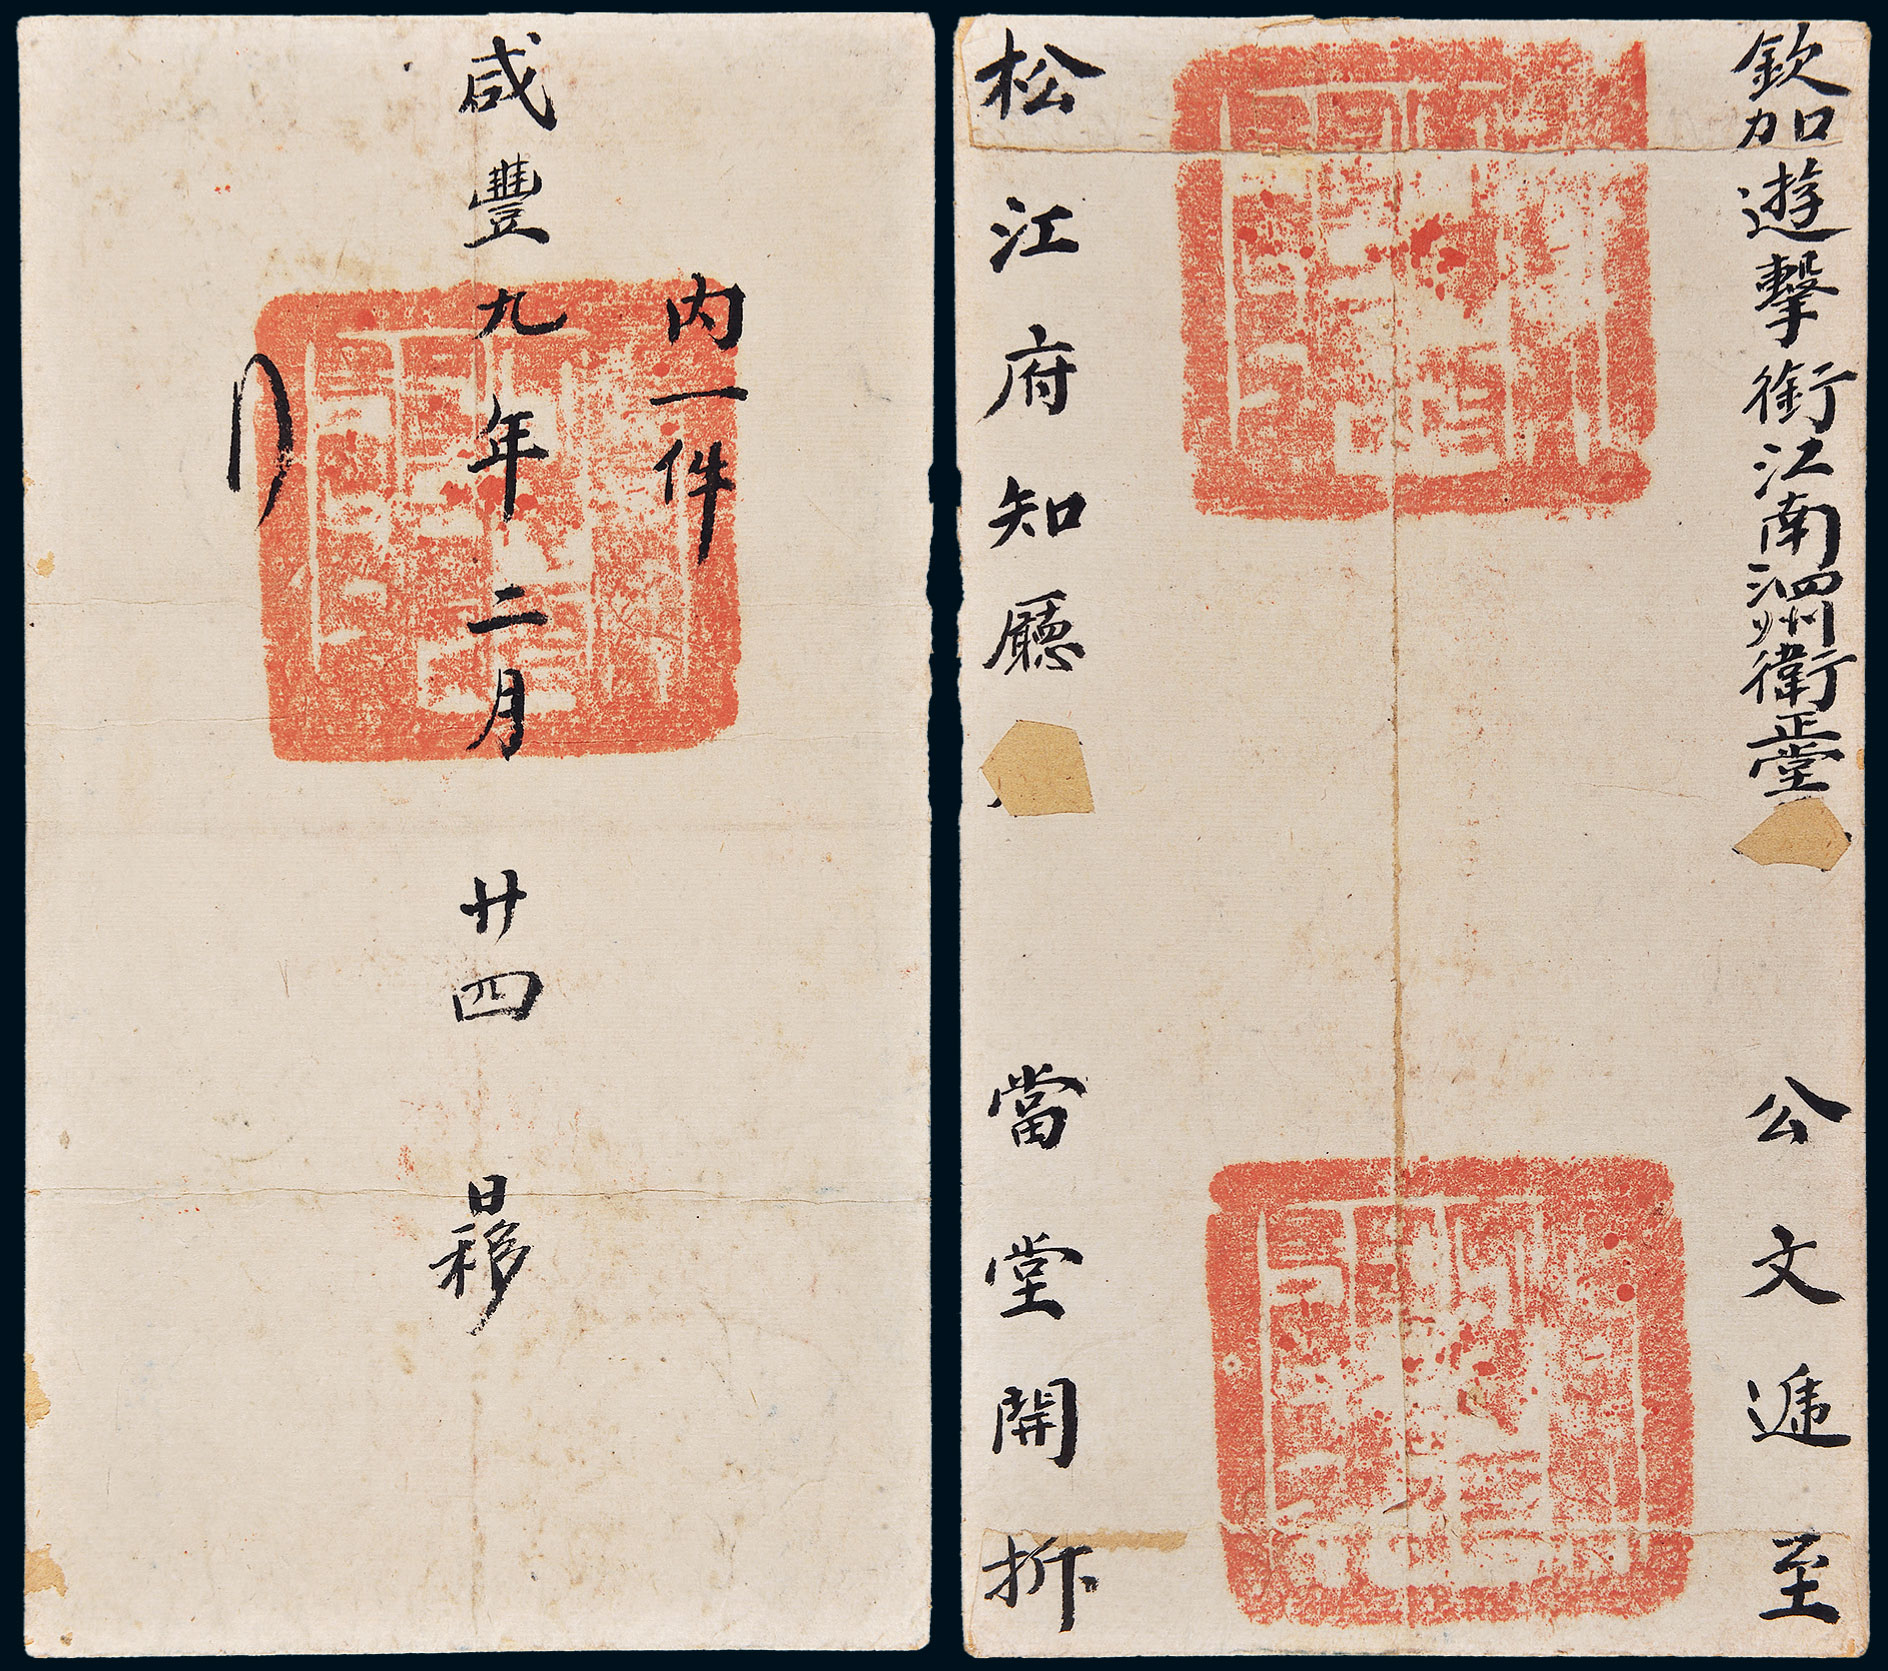 欽加遊擊銜江南泗州衛正堂
公文遞至
松江府知廳
當堂開拆
內一件
咸豐九年二月廿四日移